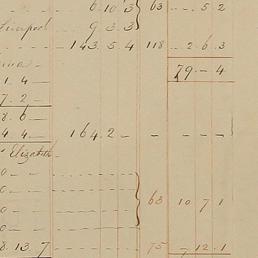 6.10.3 63 - - 5.2
Liverpool 9.3.3
143.5.4 118 - 2.6.3
79.-.4
1.4 -
7.2 -
8.6 -
4.4 - 164.2 - - - - - -
Elizabeth
0 -
0 -
0 - 63 10.7.1
0 -
8.13.7 75 - 12.1